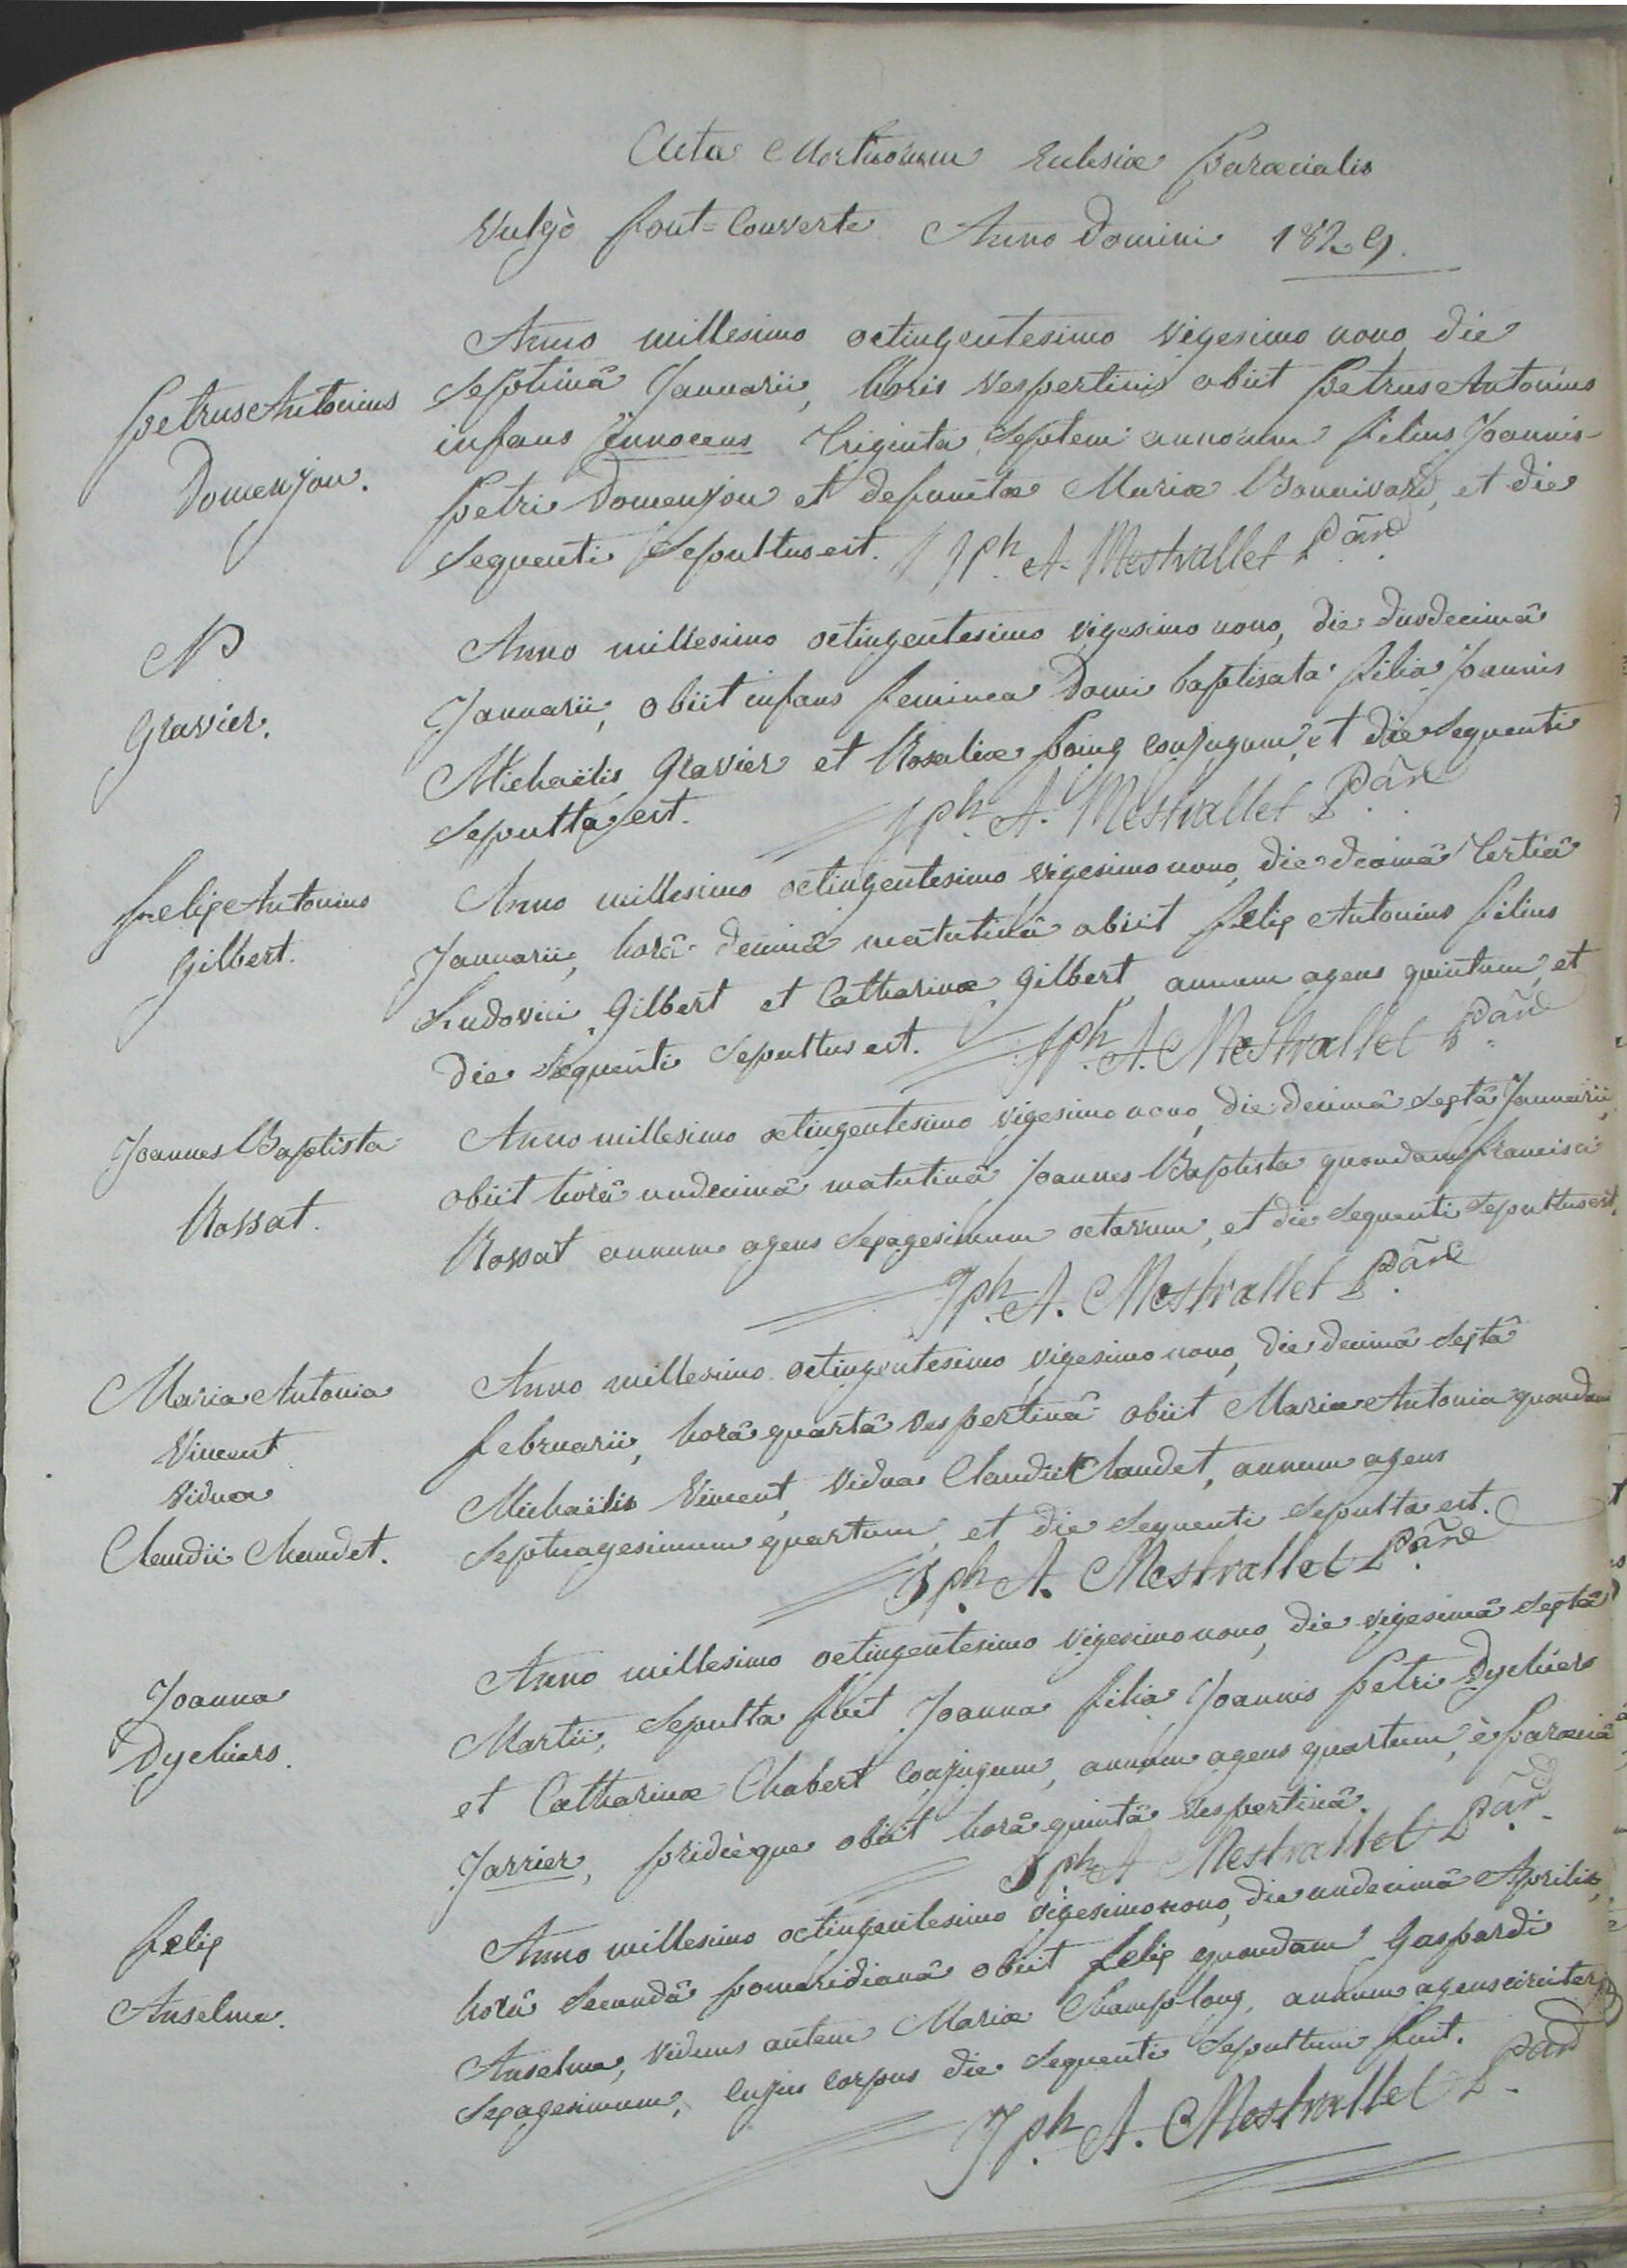 Acta Mortuorum Eclesiæ Paræcialis
Vulgò font=Couverte Anno Domini 1829.
Petrus Antonius
Domenjon.
Anno millesimo octingentesimo vigesimo nono, die
septimâ Januarii, horis vespertinis obiit Petrus Antonius
infans innocens triginta septem annorum filius Joannis-
Petri Domenjon et defunctæ Mariæ Bonnivard, et die
sequenti sepultus est. Jph. A. Mestrallet
N
Gravier.
Anno millesimo octingentesimo vigesimo nono, die duodecimâ
Januarii, obiit infans feminea domi baptisata filia Joannis
Michaëlis Gravier et Rosaliæ Poing conjugum, et die sequenti
sepulta est. Jph. A. Mestrallet
felix Antonius
Gilbert.
Anno millesimo octingentesimo vigesimo nono, die decimâ tertiâ
Januarii, horâ decimâ matutinâ obiit felix Antonius filius
Ludovici Gilbert et Catharinæ Gilbert, annum agens quintum, et
die sequenti sepultus est. Jph. A. Mestrallet
Joannes Baptista
Rossat.
Anno millesimo octingentesimo vigesimo nono, die decimâ sextâ Januarii,
obiit horâ undecimâ matutinâ Joannes Baptista quondam francisci
Rossat annum agens sexagesimum octavum, et die sequenti sepultus est.
Jph. A. Mestrallet
Maria Antonia
Vincent
vidua
Claudii Chaudet.
Anno millesimo octingentesimo vigesimo nono, die decimâ sextâ
februarii, horâ quartâ vespertinâ obiit Maria Antonia quondam
Michaëlis Vincent, vidua Claudii Chaudet, annum agens
septuagesimum quartum, et die sequenti sepulta est.
Jph. A. Mestrallet
Joanna
Dychiers.
Anno millesimo octingentesimo vigesimo nono, die vigesimâ sextâ
Martii, sepulta fuit Joanna filia Joannis Petri Dychiers
et Catharinæ Chabert conjugum, annum agens quartum, è paræciâ
Jarrier, pridièque obiit horâ quintâ vespertinâ.
Jph. A Mestrallet
felix
Anselme.
Anno millesimo octingentesimo vigesimo nono, die undecimâ Aprilis,
horâ secundâ pomeridianâ obiit felix quondam Gaspardi
Anselme, viduus autem Mariæ Champlong, annum agens circiter
sexagesimum, cujus corpus die sequenti sepultum fuit.
Jph. A. Mestrallet